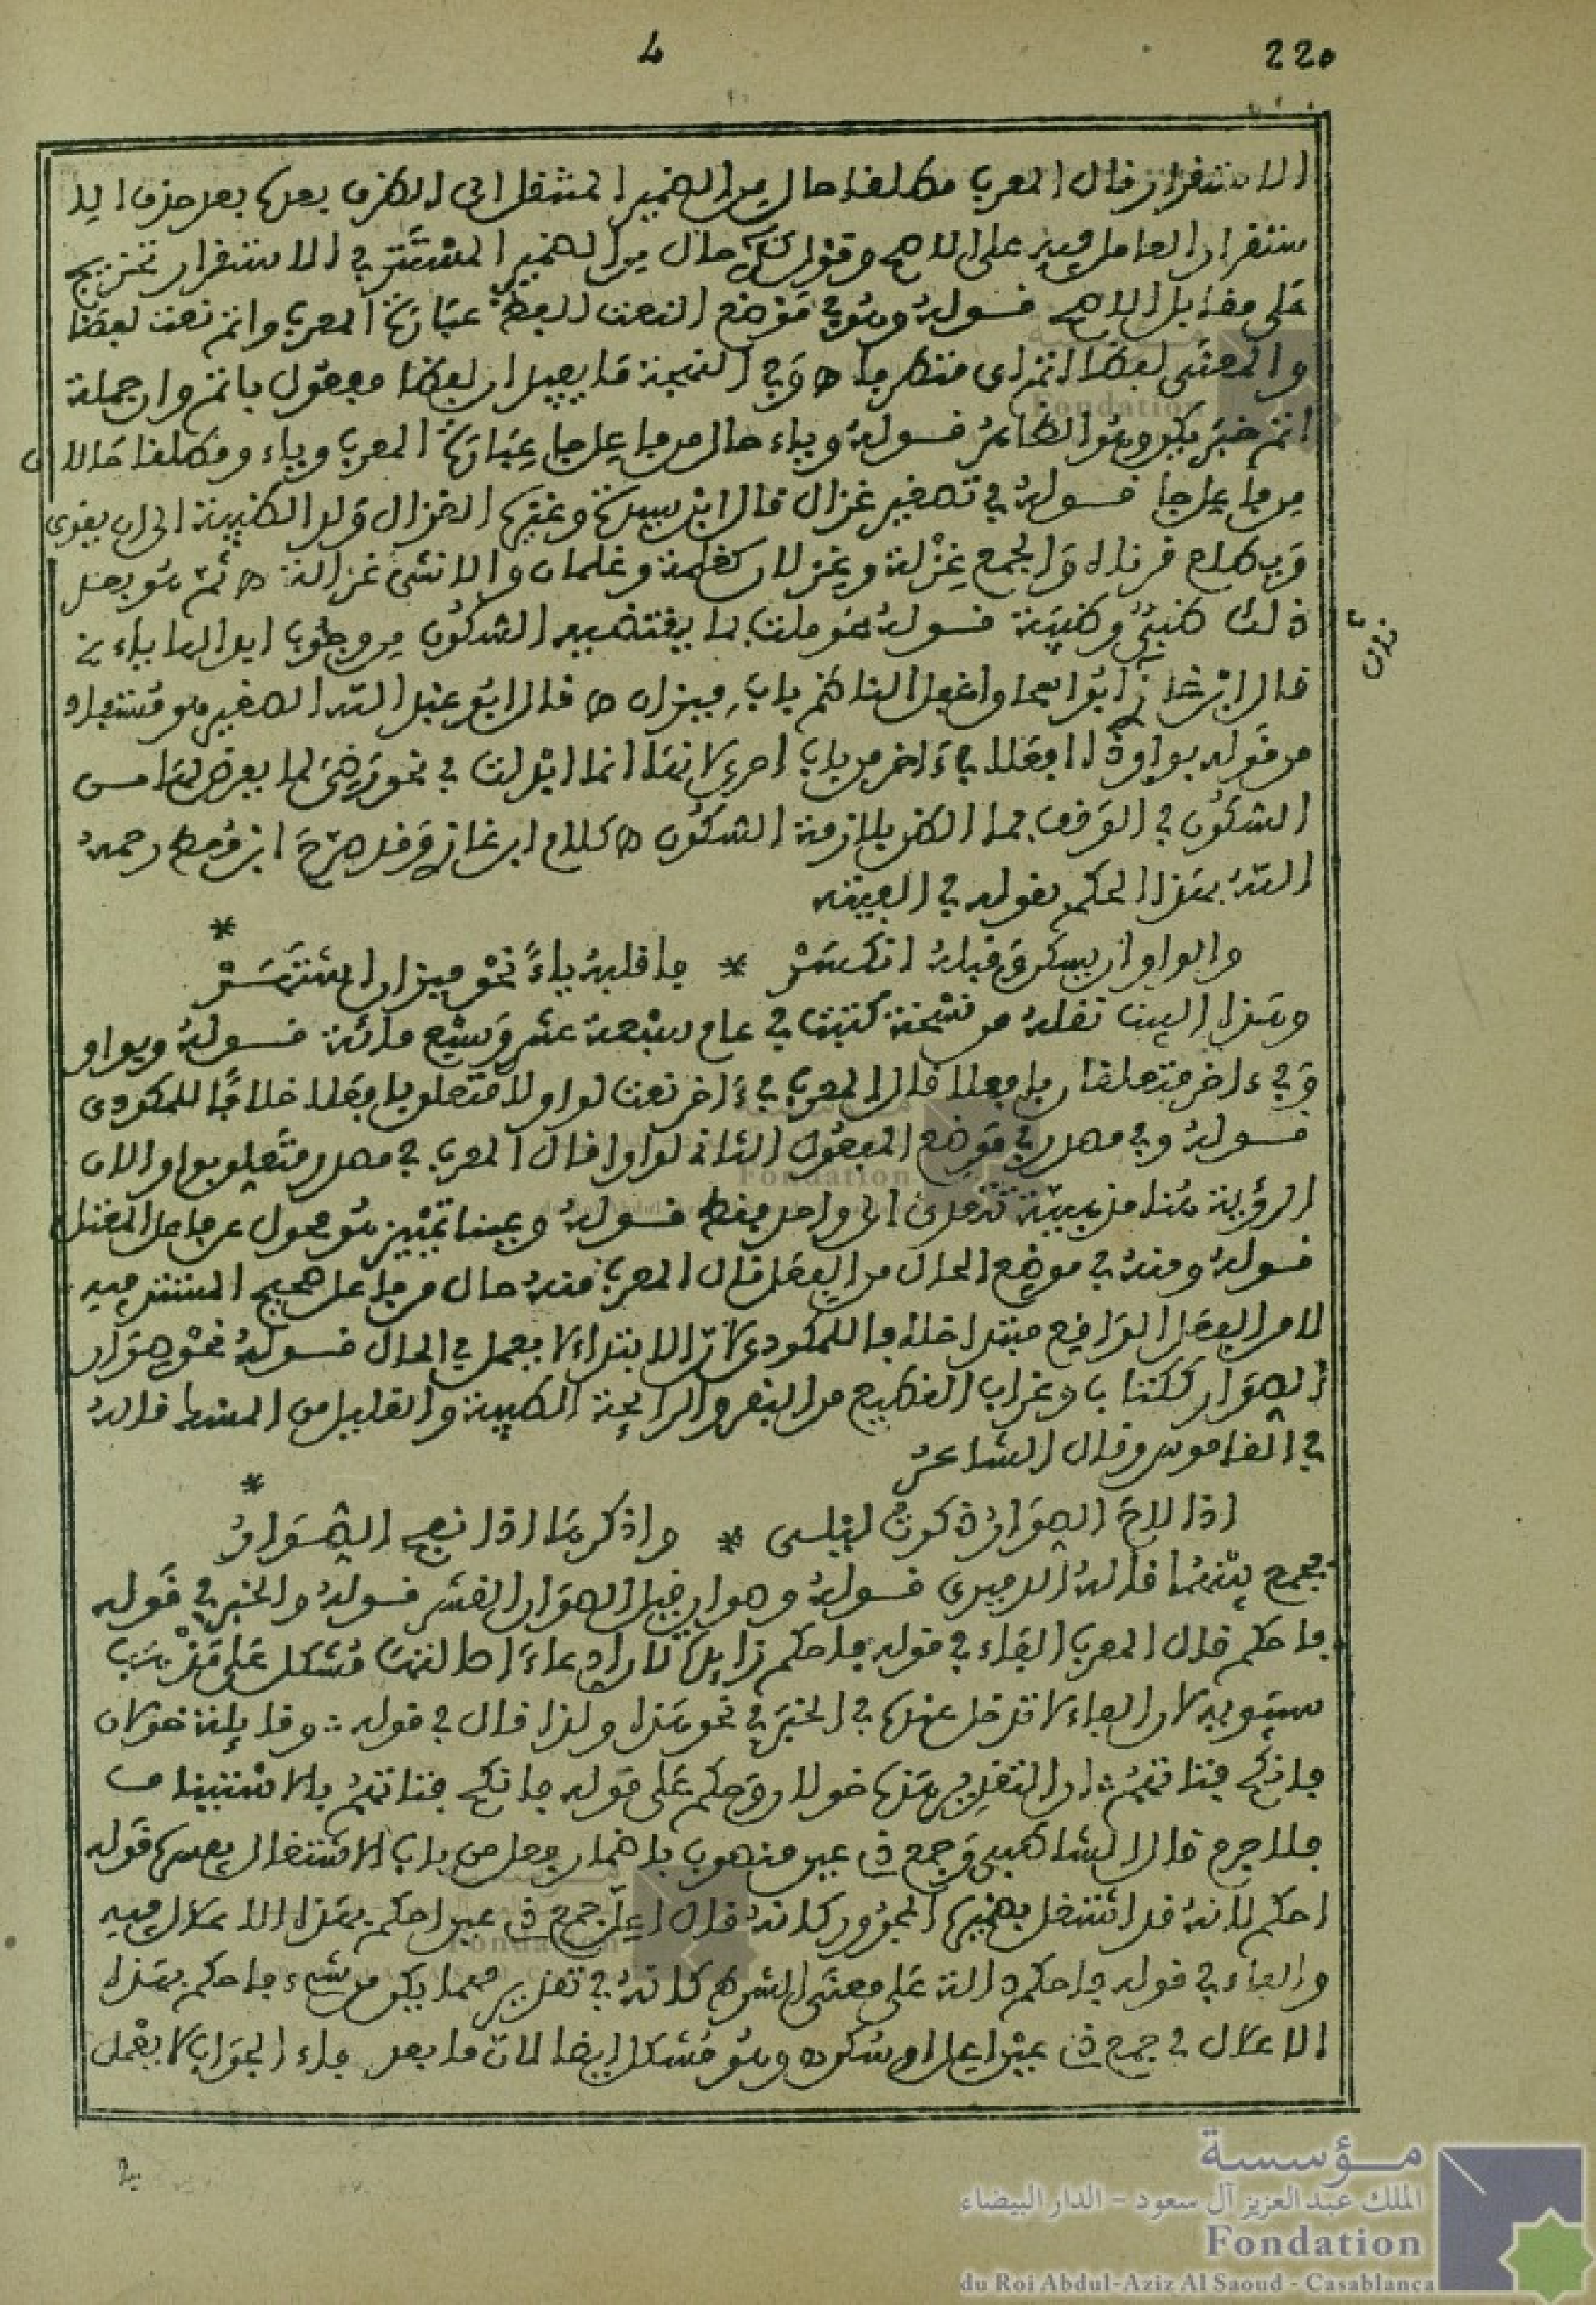 220
4
الاستقرار قال المعرب مطلقا حال من الضمير المنتقل الى الظرف بعدها بعد حذف الا
ستقرار العامل فيه على الاصح وقول حال من الضمير المستتر في الاستقرار تخريج
على مقابل الاصح قـولهُ وهو في مَوْضع النعت للفظ عبَارَةُ المعرب وانم نعت لفظا
والمعنَى لفظا انم اى منطرِفا ه وَفي النسخة مَا يفيد ان لفظا مفعول بانم وان جملة
انم خبَر يكن وهُو الظاهرُ قـولهُ وياء حال من فاعل جا عِبَارَةُ المعرب وياء ومطلقا حَالان
من فاعل جا قـولهُ في تصغير غزال قال ابن سيدَة وغيرُها الغزال وَلد الظبية الى ان يقوى
وَيطلع قرناه وَالجمع غِزْلة وغِزلان كغلمة وغلمان والانثىَ غزالة ه ثم هُو بعد
ذلك ظبيٌ وظبيَة قـولهُ عُوملت بما يقتضيه السكُون من وجُوب ابدالها ياء
قال ابْن غازي ابُو اسحاق جعل الناظم باب ميزان ه قال ابُو عبْد الله الصغير هو مُستفاد
من قَوله بواو ذا افعَلا في ءَاخر من باب احرى لانهَا انما ابْدلت في نحو رَضىَ لما يعرض لهَا مـن
السكُون في الوَقف فما الظن بلازمة السكُون ه كلام ابن غازي وَقد صَرّحَ ابن مُعط رحمهُ
اللهُ بهَذا الحكم بقوله في الفيته
*
والواو ان يسكن وَقبلهُ انكسَرْ * فاقلبهُ ياءً نحْو ميزان اشتهَـرْ
وهَذا البيت نقلهُ من نسْخة كتبت في عام سبْعة عشر وَسبْع مائة قـولهُ وبواو
وَفي ءاخر متعلقان بافعلا قال المعرب في ءَاخر نعت لواو لا متعلق بافعَلا خلافًا للمكودى
قـولهُ وفي مصدر في مَوْضع المفعُول الثاني لراوا قال المعرب في مصدر متَعلق براوا لان
الرؤية هُنا مذهبيَة تتعدى الى واحد فقط قـولهُ وعينا تمْيْيز هُو محول عن فاعل المعتل
قـولهُ ومنهُ في موضع الحَال من الفعل قال المعرب منهُ حال من فاعل صحيح المستتر فيه
لا من الفعل الوَاقع مبتدا خلافا للمكودى لانّ الابتداء لا يعمل في الحال قـولهُ نحْو صِوَار
الصِوَار ككتاب وغراب القطيع من البقر والرائحة الطيبة والقليل من المسك قالهُ
في القاموس وقال الشاعرُ
*
اذا لاحَ الصِوَارُ ذكرتُ ليْلـى * واذكرهَا اذا نفح الصُـوَارُ
فجمع بيْنهُما قالهُ الدميرى قـولهُ وصوار قيل الصوَار القشر قـولهُ والخبر في قَوله
فاحكم قال المعرب الفَاء في قوله فاحكم زايدة لان ادعاءَ اصالتهَا مُشكل عَلى مَذْهَب
سيبَويه لان الفاء لا تدخل عندها في الخبَر في نحو هَذا ولذا قال في قوله ؞ وقايلة خولان
فانكح فتاتهُم ؞ ان التقدير هَذه خولان وَحكم عَلى قَوله فانكح فتاتهُم بالاسْتينـاف
فلا جرم قال الشاطبي وَجمع ذى عين منصوب باضمار فعل من باب الاشتغال يفسره قَوله
احكم لانهُ قد اشتغل بضميره المجرُور كانهُ قال اعِلّ جمع ذى عين احكم بهَذا الاعلال فيه
والفاء في قوله فاحكم دالة عَلى معنَى الشرط كانهُ في تقدير مهما يكن من شيء فاحكم بهَذا
الاعلال في جمع ذى عيْن اعل او سكن ه وهُو مُشكل ايضا لان ما بعد فاء الجوَاب لا يعْمل
في
مؤسسة
الملك عبد العزيز آل سعود - الدار البيضاء
Fondation
du Roi Abdul-Aziz Al Saoud - Casablanca